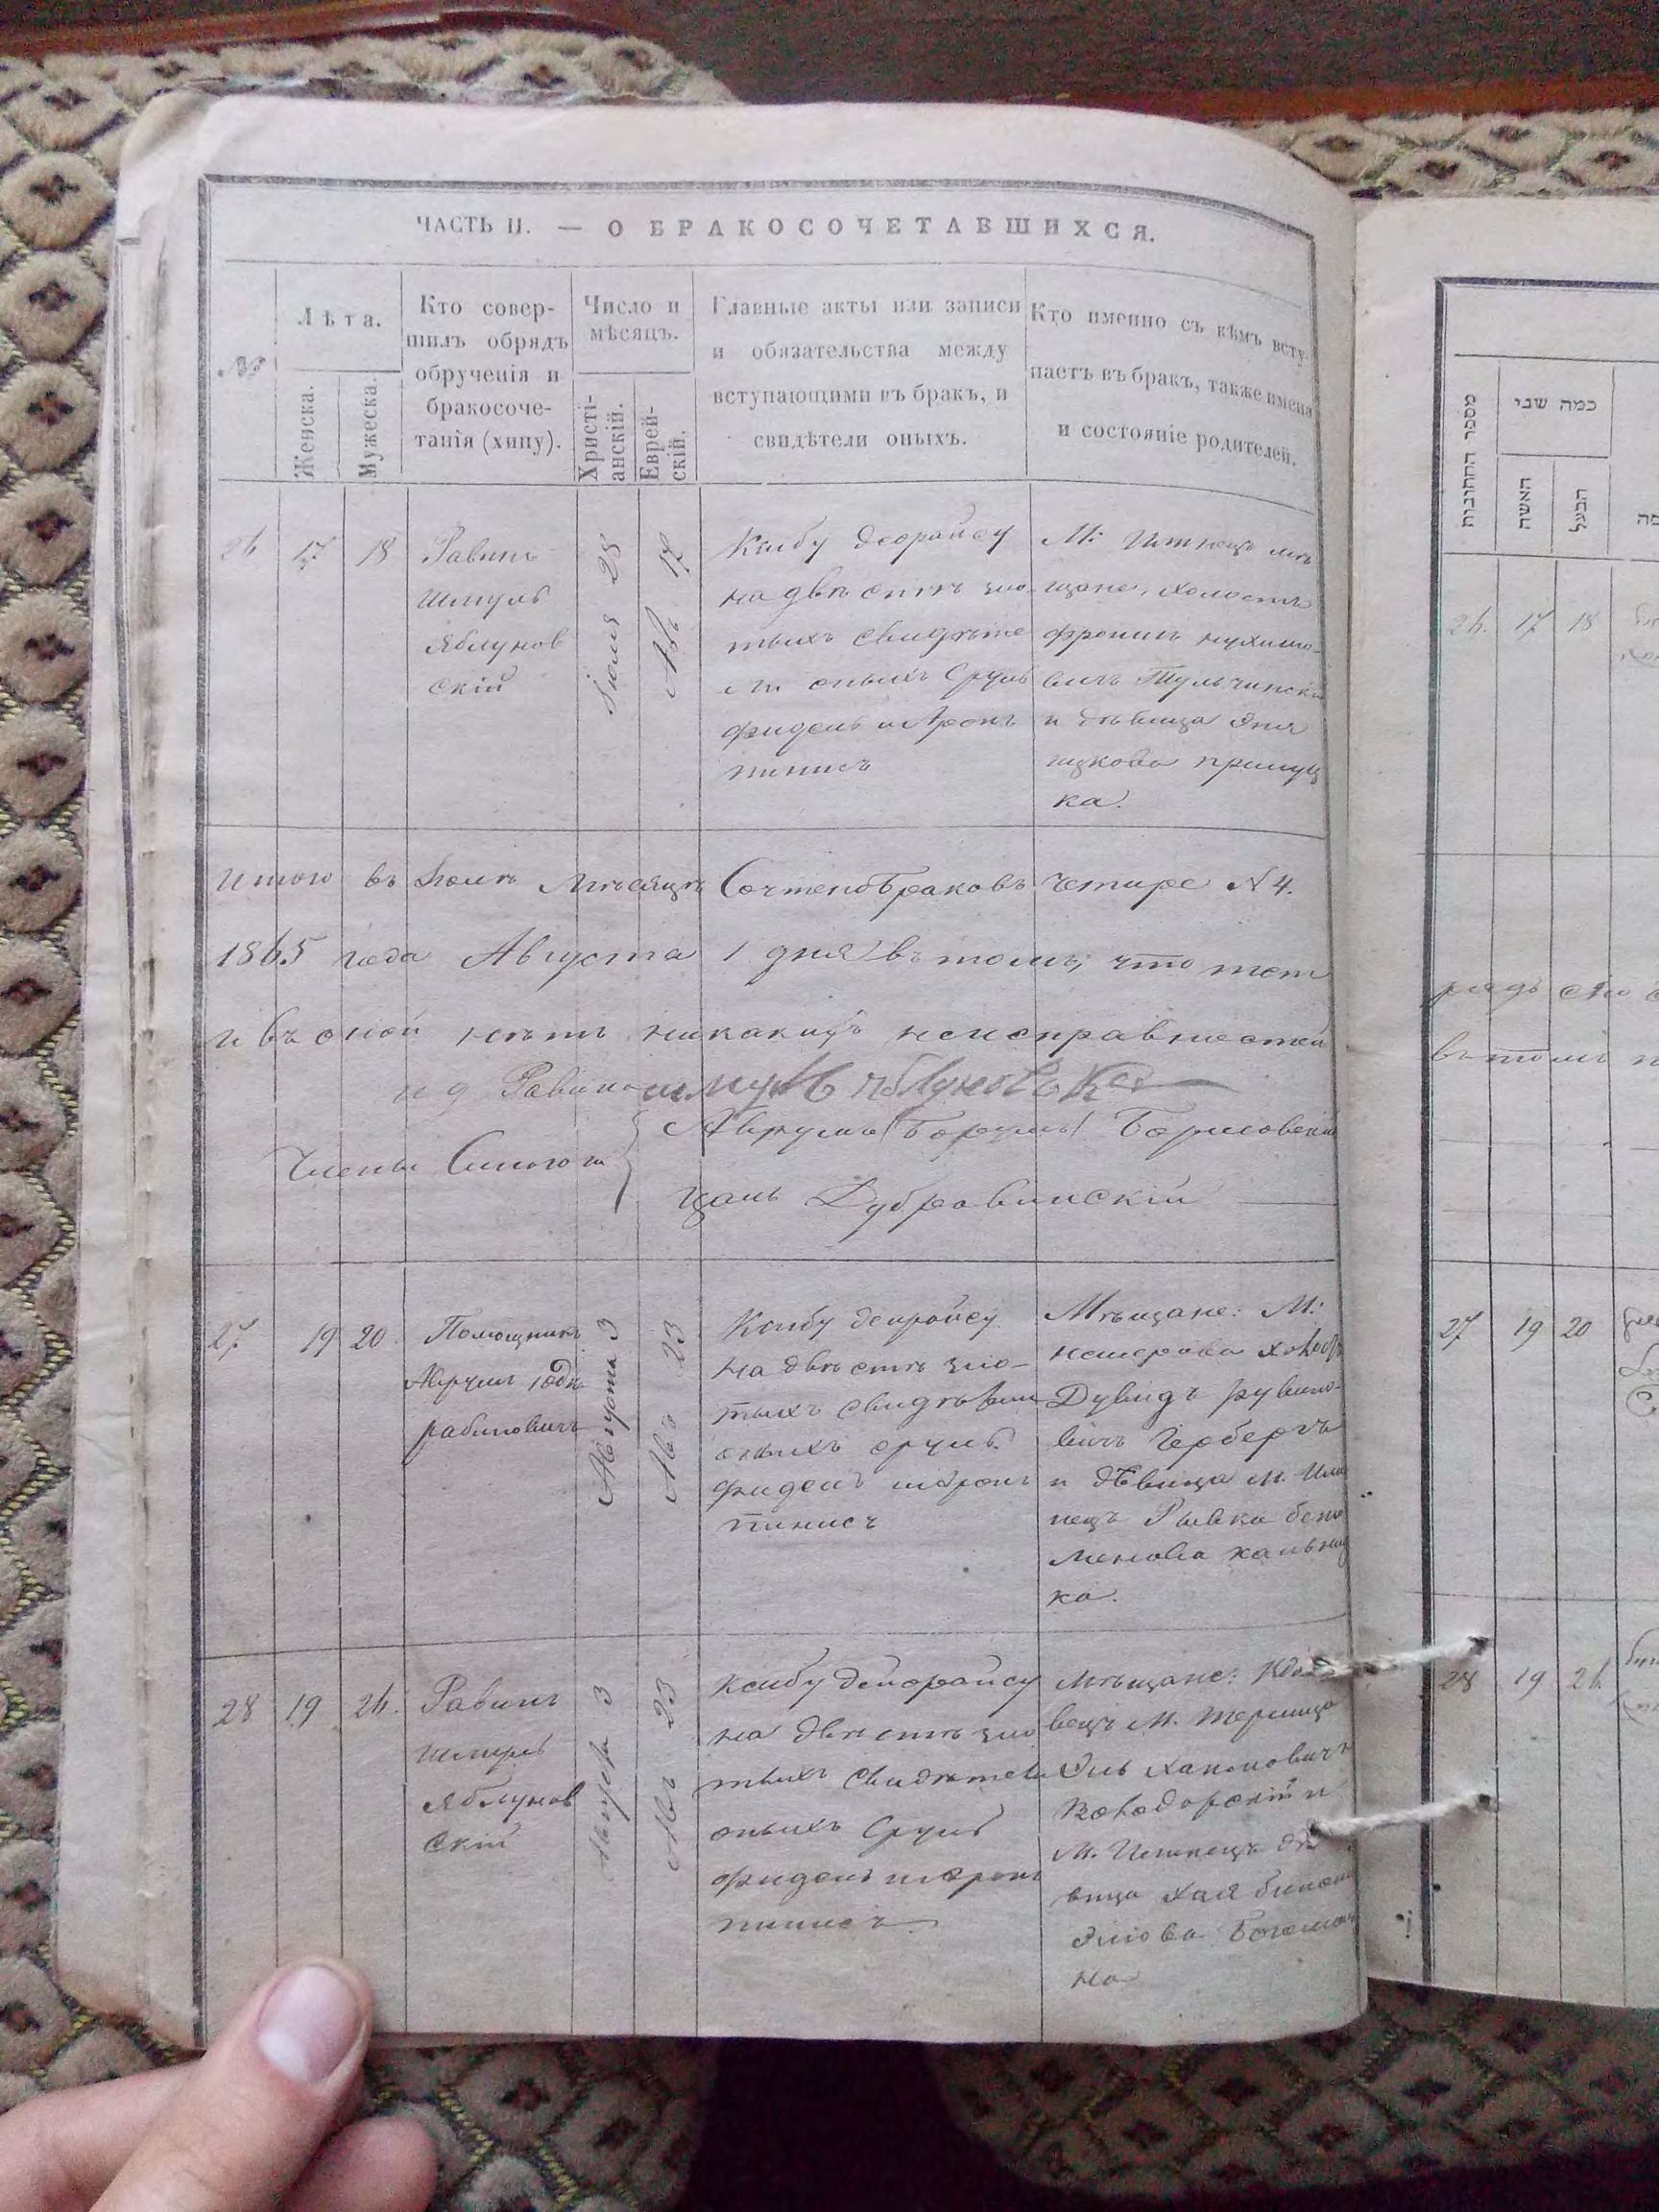 ЧАСТЬ II. — О БРАКОСОЧЕТАВШИХСЯ.
№
Лѣта.
Женска.
Мужеска.
Кто совер-
шилъ обрядъ
обрученія и
бракосоче-
танія (хипу).
Число и
мѣсяцъ.
Христі-
анскій.
Еврей-
скій.
Главные акты или записи
и обязательства между
вступающими въ бракъ, и
свидѣтели оныхъ.
Кто именно съ кѣмъ всту-
паетъ въ бракъ, также имена
и состояніе родителей.
26
17
18
Равинъ
Шмуль
Яблунов
скій
Іюля 28
Авъ 17
Ксибу деорайсу
на двѣ стѣ зло
тыхъ свидѣте
ли оныхъ Сруль
фидель и Аронъ
пинисъ
М: Илинецъ мѣ
щане, холостъ
фроимъ нухимо-
вичъ Тульчински
и дѣвица Эня
ицкова прилуц
ка.
Итого въ Іюлѣ Мѣсяцѣ Сочтено браковъ четире № 4.
1865 года Августа 1 дня въ томъ, что тет
и въ оной нѣтъ никакихъ неисправностей
и д Равина шмуль яблуновскей
Члены Синогоги
Аврумъ Борухъ Борисовскій
Цаль Дубровинскій
27
19
20
Помощникъ
Аврумъ Іодк
рабиновичъ
Августа 3
Авъ 23
Ксибу деорайсу
на двѣ стѣ зло-
тыхъ свидѣтели
оныхъ сруль
фидель и Аронъ
пинисъ
Мѣщане: М:
немерова холост
Дувидъ рувино-
вичъ Герберъ
и дѣвица М. Или
нецъ Рывка бене
менова кальниц
ка.
28
19
26.
Равинъ
Шмуль
Яблунов
скій
Августа 3
Авъ 23
Ксибу деиорайсу
на двѣ стѣ зло
тыхъ свидѣтели
оныхъ Сруль
фидель и Аронъ
пинисъ
Мѣщане: Вдо
вецъ М. Терлица
Эль Хаимовичъ
и
М. Илинецъ дѣ
вица Хая
на
מספר החתונות
כמה שני
האשה
הבעל
26.
17
18
27
19
20
28
19
26